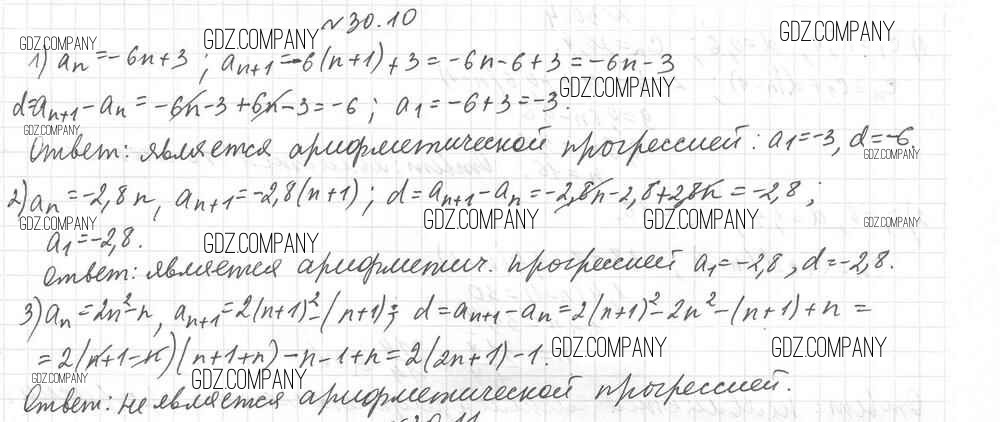 №30.10
GDZ.COMPANY GDZ.COMPANY GDZ.COMPANY
1) aₙ = -6n+3 ; aₙ₊₁ = -6(n+1)+3 = -6n-6+3 = -6n-3
GDZ.COMPANY
d = aₙ₊₁ - aₙ = -6n-3+6n-3 = -6 ; a₁ = -6+3 = -3.
GDZ.COMPANY
Ответ: является арифметической прогрессией: a₁=-3, d=-6.
GDZ.COMPANY
2) aₙ = -2,8n, aₙ₊₁ = -2,8(n+1) ; d = aₙ₊₁ - aₙ = -2,8n-2,8+2,8n = -2,8 ;
GDZ.COMPANY GDZ.COMPANY GDZ.COMPANY GDZ.COMPANY
a₁ = -2,8.
GDZ.COMPANY
Ответ: является арифметич. прогрессией a₁=-2,8, d=-2,8.
3) aₙ = 2n²-n, aₙ₊₁ = 2(n+1)²-(n+1); d = aₙ₊₁ - aₙ = 2(n+1)²-2n²-(n+1)+n =
= 2(n+1-n)(n+1+n)-n-1+n = 2(2n+1)-1.
GDZ.COMPANY GDZ.COMPANY
GDZ.COMPANY GDZ.COMPANY
Ответ: не является арифметической прогрессией.